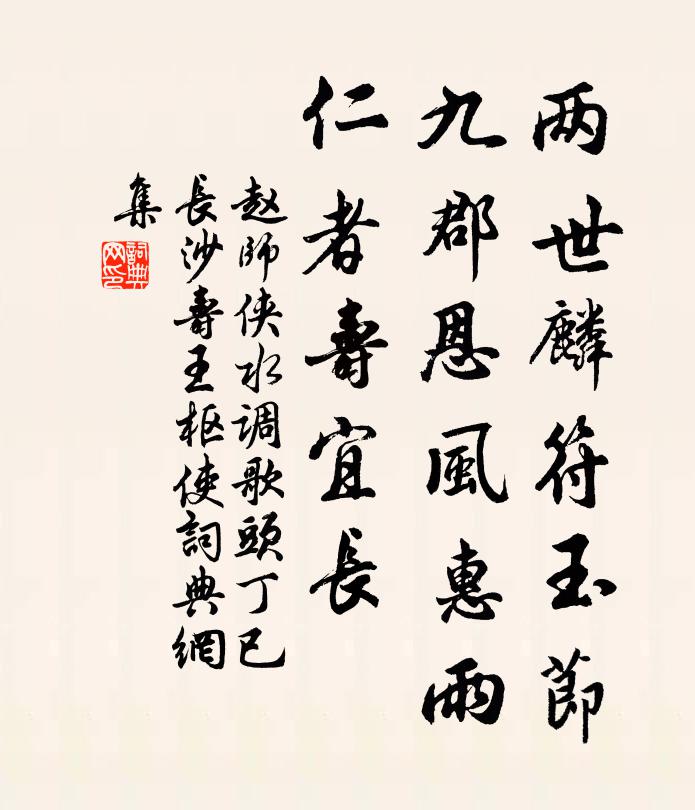 两世麟符玉節
九郡恩風惠雨
仁者壽宜長
赵師侠水调歌頭丁巳
長沙壽王枢使詞典網
集
詞典
网印